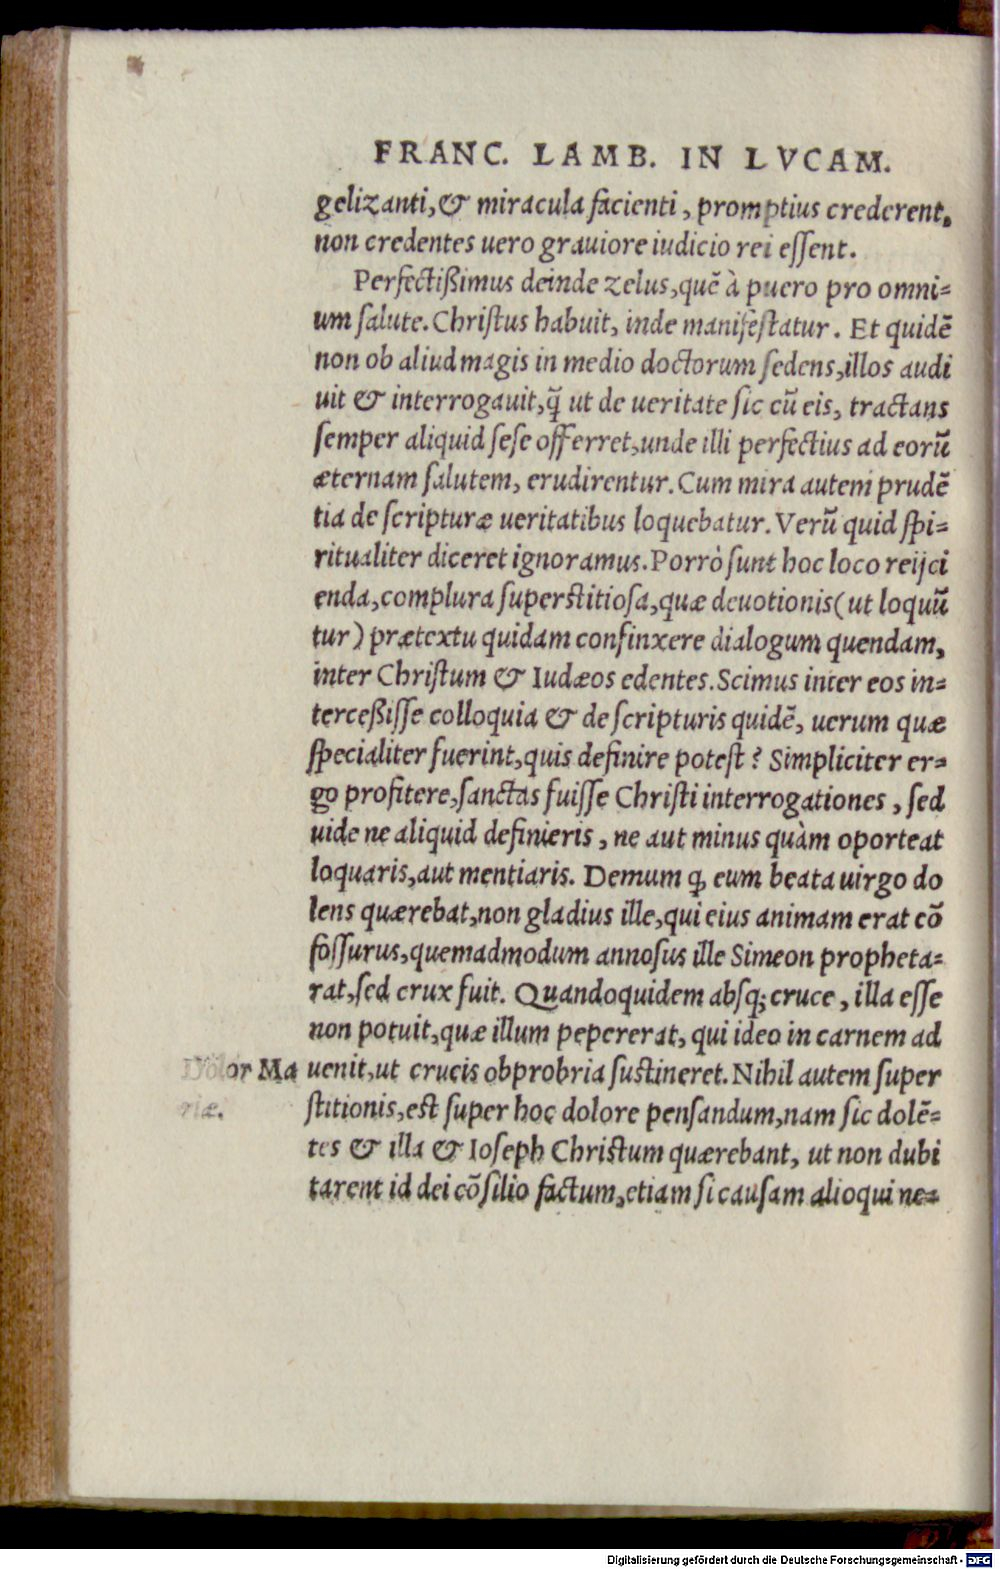 FRANC. LAMB. IN LVCAM.
gelizanti, & miracula facienti, promptius crederent,
non credentes uero grauiore iudicio rei essent.
Perfectißimus deinde zelus, quē à puero pro omni=
um salute. Christus habuit, inde manifestatur. Et quidē
non ob aliud magis in medio doctorum sedens, illos audi
uit & interrogauit, q̄ ut de ueritate sic cū eis, tractans
semper aliquid sese offerret, unde illi perfectius ad eorū
æternam salutem, erudirentur. Cum mira autem prudē
tia de scripturæ ueritatibus loquebatur. Verū quid spi=
ritualiter diceret ignoramus. Porrò sunt hoc loco reijci
enda, complura superstitiosa, quæ deuotionis (ut loquū
tur) prætextu quidam confinxere dialogum quendam,
inter Christum & Iudæos edentes. Scimus inter eos in=
terceßisse colloquia & de scripturis quidē, uerum quæ
specialiter fuerint, quis definire potest? Simpliciter er=
go profitere, sanctas fuisse Christi interrogationes, sed
uide ne aliquid definieris, ne aut minus quàm oporteat
loquaris, aut mentiaris. Demum ꝙ eum beata uirgo do
lens quærebat, non gladius ille, qui eius animam erat cō
fossurus, quemadmodum annosus ille Simeon propheta=
rat, sed crux fuit. Quandoquidem absq; cruce, illa esse
non potuit, quæ illum pepererat, qui ideo in carnem ad
Dolor Ma
riæ.
uenit, ut crucis obprobria sustineret. Nihil autem super
stitionis, est super hoc dolore pensandum, nam sic dolē=
tes & illa & Ioseph Christum quærebant, ut non dubi
tarent id dei cōsilio factum, etiam si causam alioqui ne=
Digitalisierung gefördert durch die Deutsche Forschungsgemeinschaft - DFG